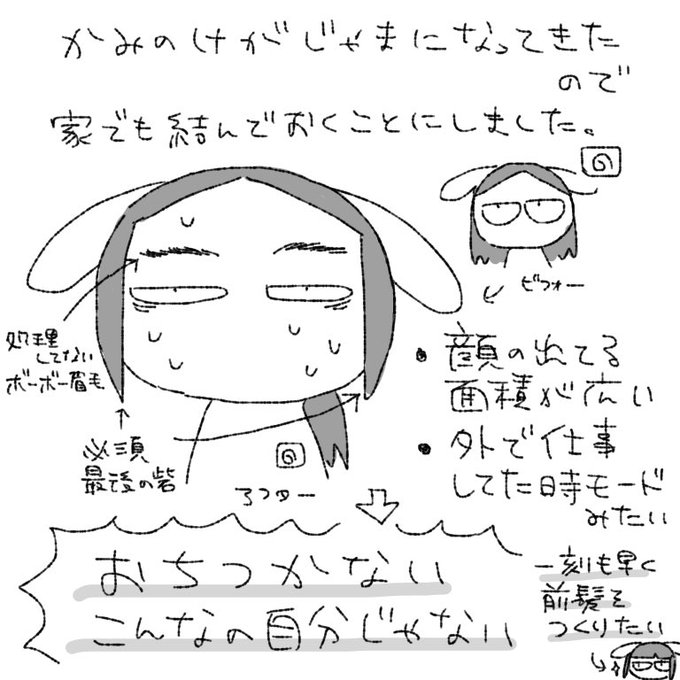 かみのけがじゃまになってきた
ので
家でも結んでおくことにしました。
ビフォー
処理
してない
ボーボー眉毛
・顔の出てる
面積が広い
・外で仕事
してた時モード
みたい
必須
最後の砦
アフター
おちつかない
こんなの自分じゃない
一刻も早く
前髪を
つくりたい